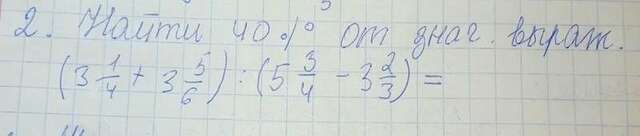 2. Найти 40% от знач. выраж.
(3 1/4 + 3 5/6) : (5 3/4 - 3 2/3) =